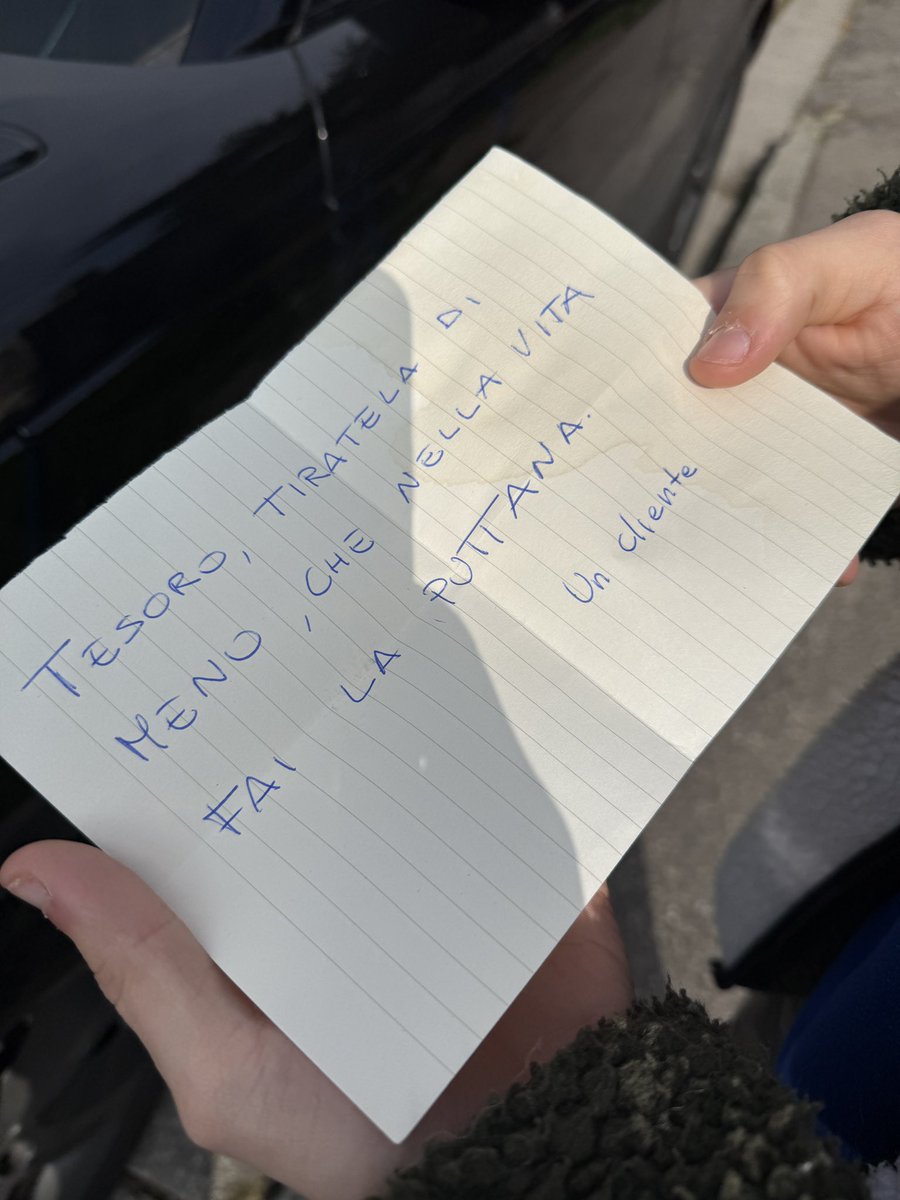 TESORO, TIRATELA DI
MENO, CHE NELLA VITA
FAI LA PUTTANA.
Un cliente